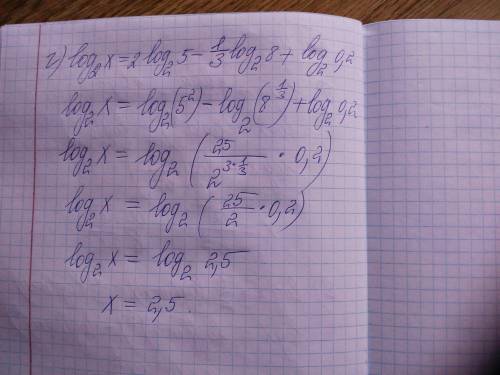 г) log₂x = 2log₂5 - 1/3 log₂8 + log₂0,2
log₂x = log₂(5²) - log₂(8^(1/3)) + log₂0,2
log₂x = log₂(25/2^(3·1/3) · 0,2)
log₂x = log₂(25/2 · 0,2)
log₂x = log₂ 2,5
x = 2,5.